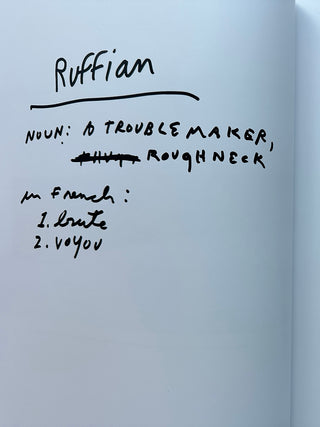 Ruffian
NOUN: A TROUBLEMAKER,
ROUGHNECK
in French:
1. brute
2. voyou